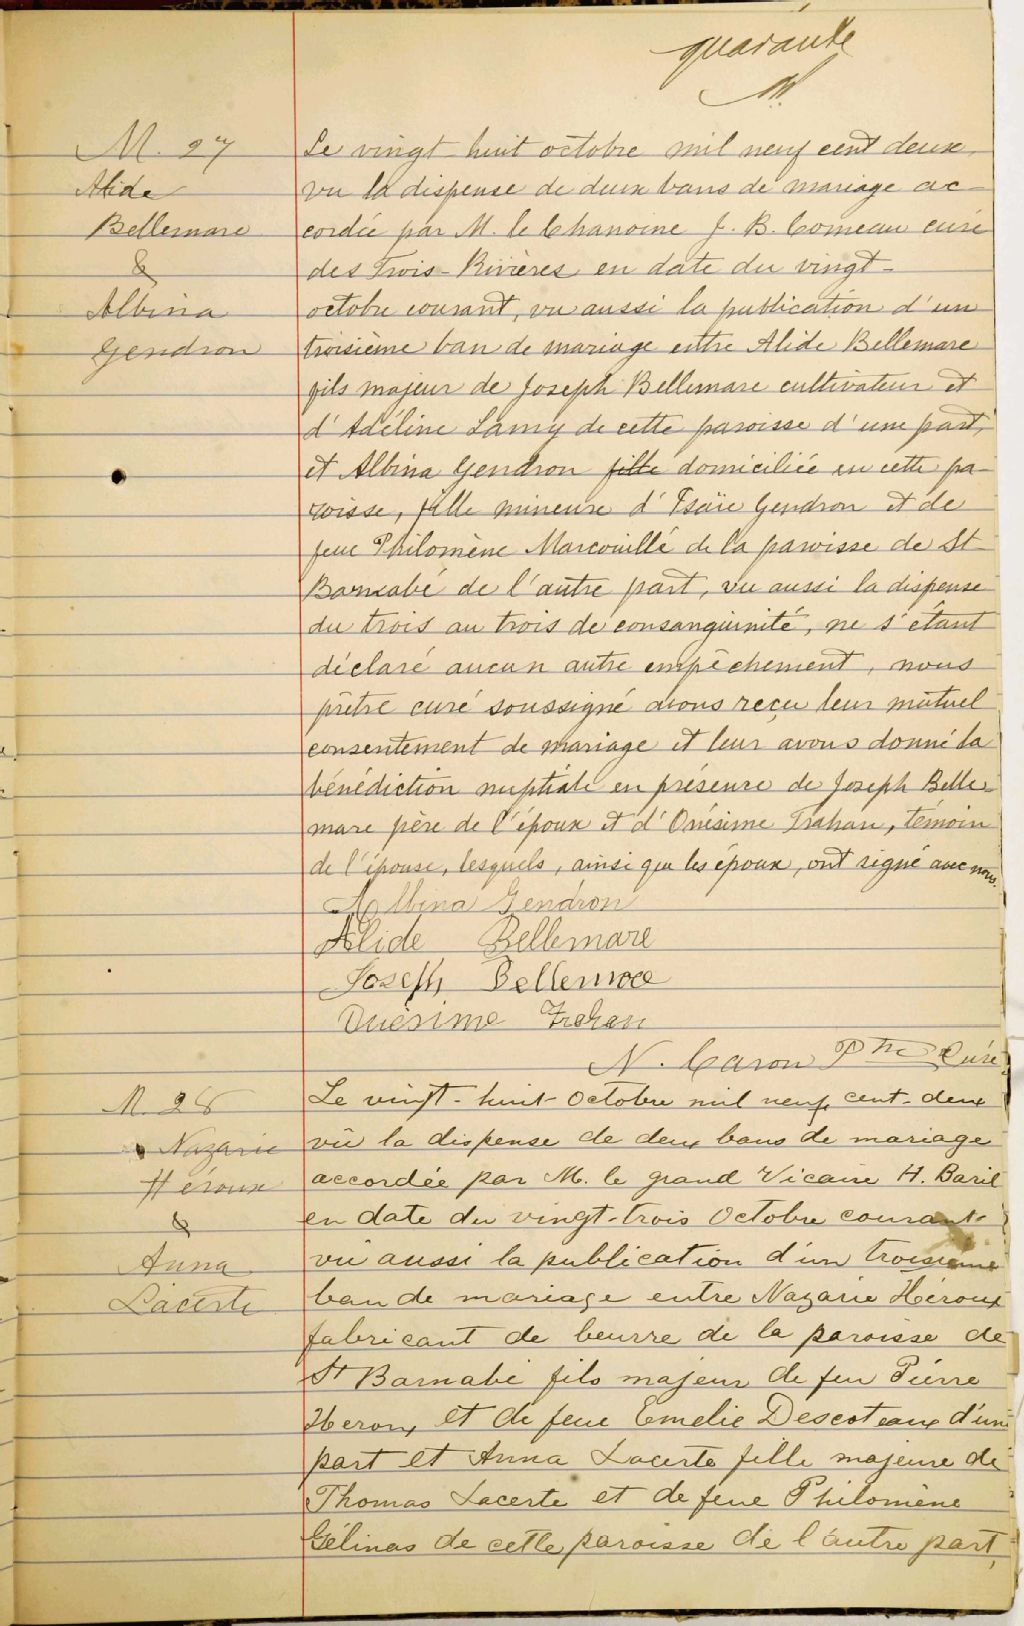 quarante
M. 27
Alide
Bellemare
&
Albina
Gendron
Le vingt-huit octobre mil neuf cent deux,
vu la dispense de deux bans de mariage ac-
cordée par M. le Chanoine J. B. Comeau curé
des Trois-Rivières en date du vingt-
octobre courant, vu aussi la publication d'un
troisième ban de mariage entre Alide Bellemare
fils majeur de Joseph Bellemare cultivateur et
d'Adéline Lamy de cette paroisse d'une part,
et Albina Gendron fille domiciliée en cette pa-
roisse, fille mineure d'Isaïe Gendron et de
feue Philomène Marcouillé de la paroisse de St
Barnabé de l'autre part, vu aussi la dispense
du trois au trois de consanguinité, ne s'étant
déclaré aucun autre empêchement, nous
prêtre curé soussigné avons reçu leur mutuel
consentement de mariage et leur avons donné la
bénédiction nuptiale en présence de Joseph Belle-
mare père de l'époux et d'Onésime Trahan, témoin
de l'épouse, lesquels, ainsi que les époux, ont signé avec nous.
Albina Gendron
Alide Bellemare
Joseph Bellemare
Onésime Trahan
N. Caron Ptre Curé
M. 28
Nazarie
Héroux
&
Anna
Lacerte
Le vingt-huit Octobre mil neuf cent-deux
vû la dispense de deux bans de mariage
accordée par M. le grand Vicaire H. Baril
en date du vingt-trois Octobre courant
vû aussi la publication d'un troisieme
ban de mariage entre Nazarie Héroux
fabricant de beurre de la paroisse de
St Barnabé fils majeur de feu Pierre
Heroux et de feue Emelie Descoteaux d'une
part et Anna Lacerte fille majeure de
Thomas Lacerte et de feue Philomène
Gélinas de cette paroisse de l'autre part,